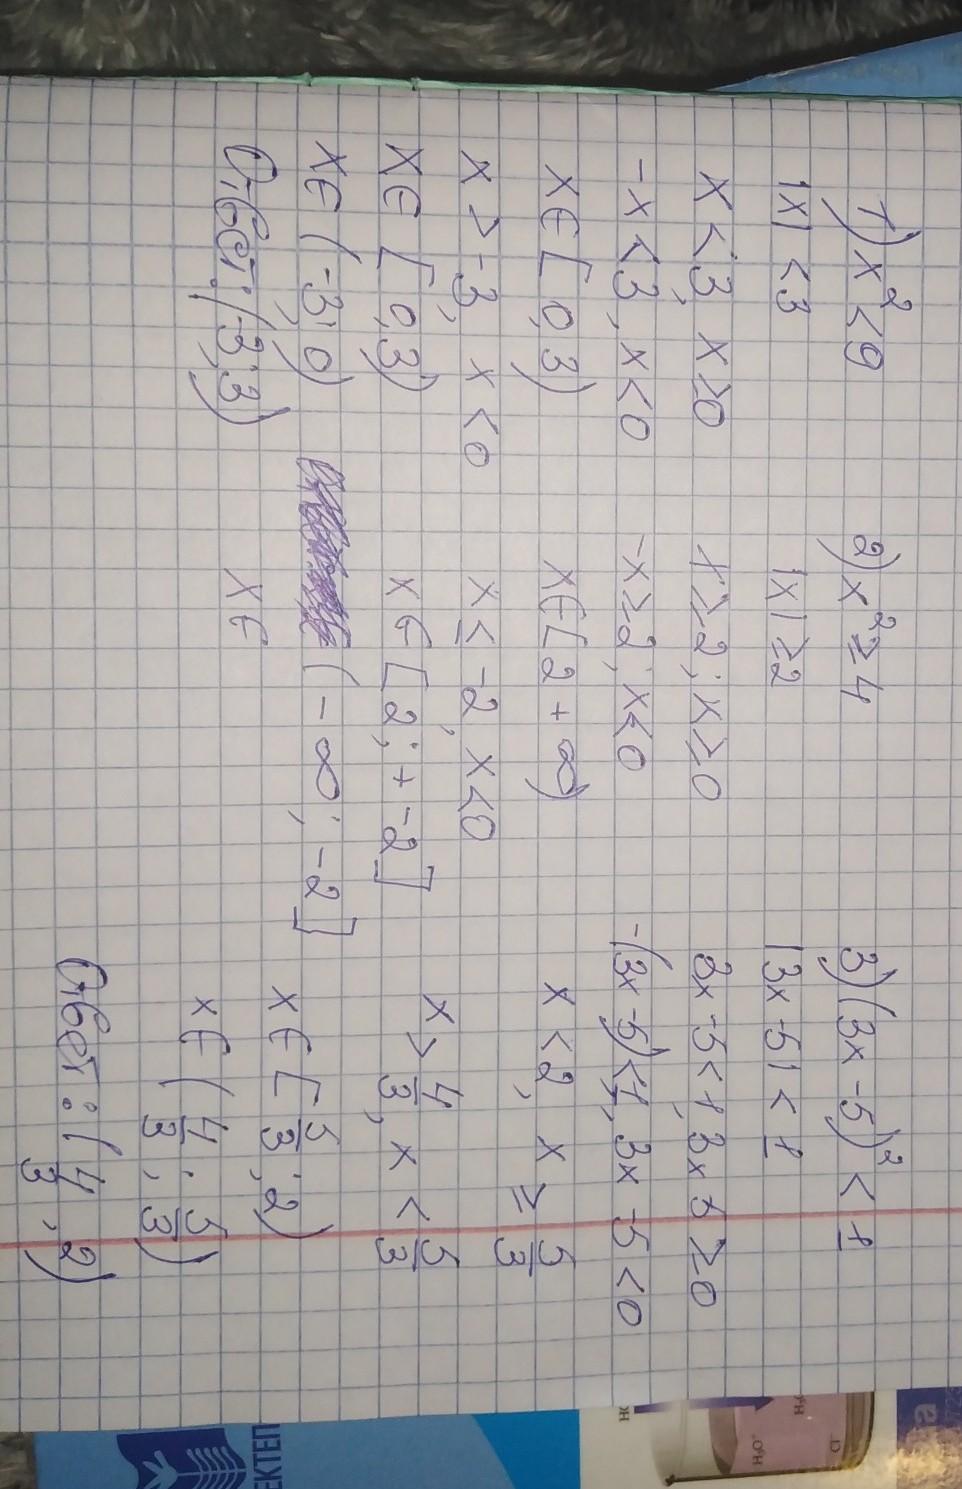 1) x² < 9
|x| < 3
x < 3, x ≥ 0
-x < 3, x < 0
x ∈ [0,3)
x > -3, x < 0
x ∈ [0,3)
x ∈ (-3; 0)
Ответ: (-3; 3)
2) x² ≥ 4
|x| ≥ 2
x ≥ 2; x ≥ 0
-x ≥ 2; x < 0
x ∈ [2 + ∞)
x ≤ -2, x < 0
x ∈ [2; + -2]
(-∞; -2]
x ∈
3) (3x - 5)² < 1
|3x - 5| < 1
3x - 5 < 1, 3x 5 ≥ 0
-(3x - 5) < 1, 3x - 5 < 0
x < 2, x ≥ 5/3
x > 4/3, x < 5/3
x ∈ [5/3; 2)
x ∈ (4/3; 5/3)
Ответ: (4/3; 2)
ЕКТЕП
H₃O⁺
Cl⁻